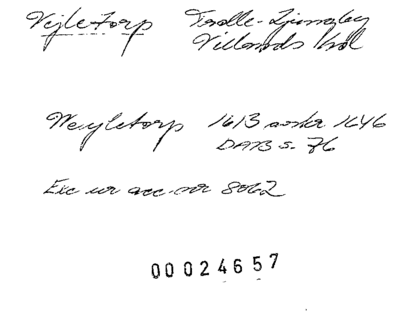 Vejletorp Trolle-Ljungby
Villands hd
Weyletorp 1613 avskr 1646
DATB s. 76
Exc ur acc-nr 8062
00024657